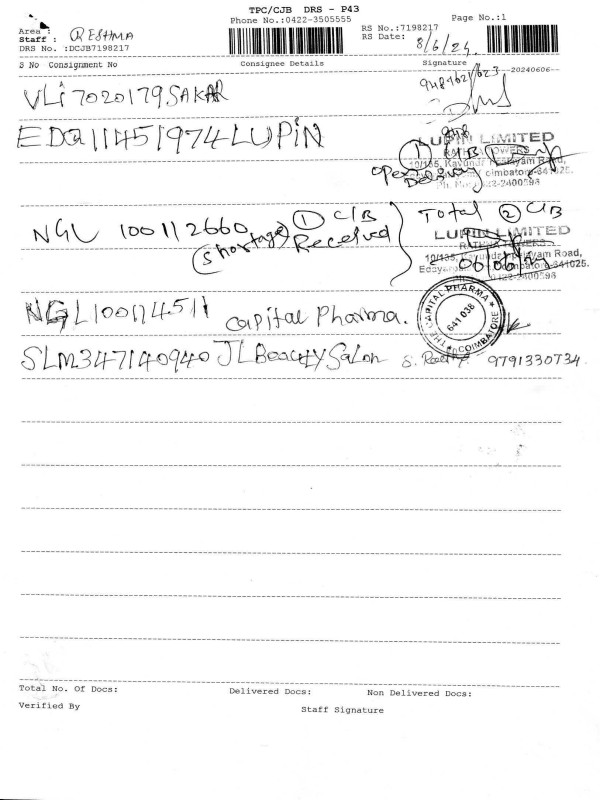 TPC/CJB DRS - P43
Phone No.:0422-3505555
Page No.:1
Area :
Staff : RESHMA
DRS No. :DCJB7198217
RS No.:7198217
RS Date: 8/6/24
S No Consignment No Consignee Details Signature
20240606
VLi7020179 SAKAR
EDQ11451974 LUPIN
LUPIN LIMITED
1 C/B
open Delivery
NGL 100112660 1 C/B
(Shortage) Received
Total 2 C/B
LUPIN LIMITED
10/135, Ravundampalayam Road,
Coimbatore-641025.
NGL100114511 Capital Pharma.
THE CAPITAL PHARMA
641 038
COIMBATORE
SLM347140940 JL Beauty Salon 9791330734
Total No. Of Docs: Delivered Docs: Non Delivered Docs:
Verified By Staff Signature